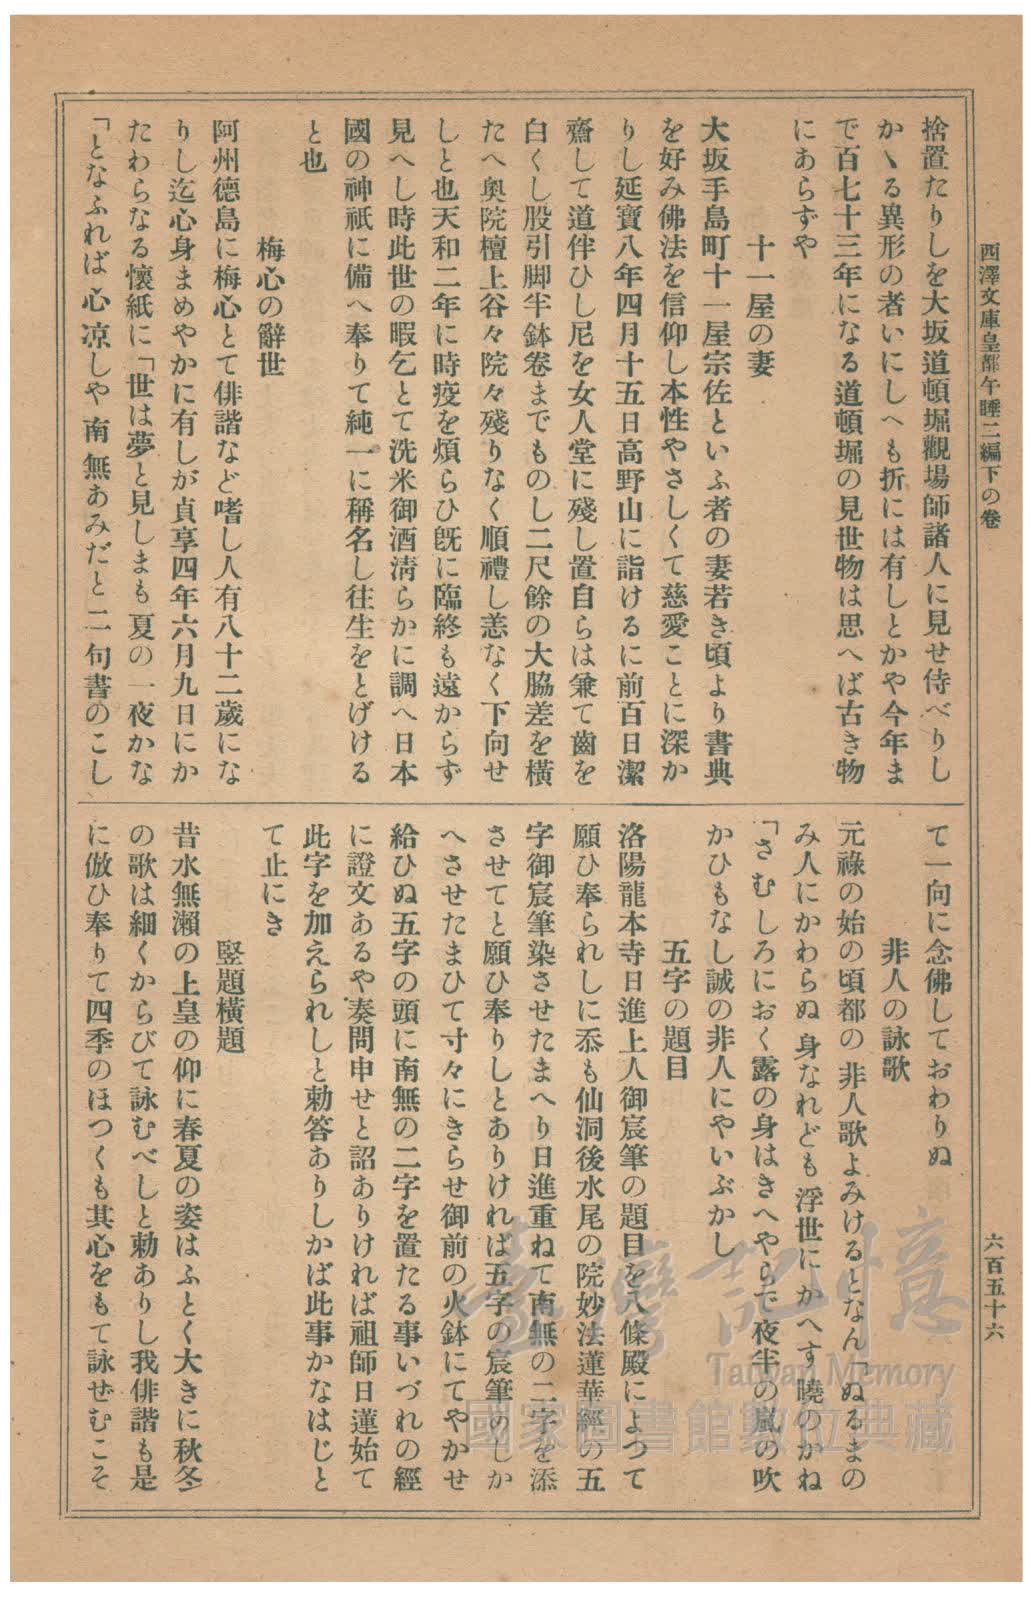 西澤文庫皇都午睡二編下の卷
六百五十六
捨置たりしを大坂道頓堀觀場師諸人に見せ侍べりし
かゝる異形の者いにしへも折には有しとかや今年ま
で百七十三年になる道頓堀の見世物は思へば古き物
にあらずや
十一屋の妻
大坂手島町十一屋宗佐といふ者の妻若き頃より書典
を好み佛法を信仰し本性やさしくて慈愛ことに深か
りし延寶八年四月十五日高野山に詣けるに前百日潔
齋して道伴ひし尼を女人堂に殘し置自らは兼て齒を
白くし股引脚半鉢卷までものし二尺餘の大脇差を橫
たへ奧院檀上谷々院々殘りなく順禮し恙なく下向せ
しと也天和二年に時疫を煩らひ既に臨終も遠からず
見へし時此世の暇乞とて洗米御酒淸らかに調へ日本
國の神祇に備へ奉りて純一に稱名し往生をとげける
と也
梅心の辭世
阿州德島に梅心とて俳諧など嗜し人有八十二歲にな
りし迄心身まめやかに有しが貞享四年六月九日にか
たわらなる懷紙に「世は夢と見しまも夏の一夜かな
「となふれば心凉しや南無あみだと二句書のこし
て一向に念佛しておわりぬ
非人の詠歌
元祿の始の頃都の非人歌よみけるとなん「ぬるまの
み人にかわらぬ身なれども浮世にかへす曉のかね
「さむしろにおく露の身はきへやらで夜半の嵐の吹
かひもなし誠の非人にやいぶかし
五字の題目
洛陽龍本寺日進上人御宸筆の題目を八條殿によつて
願ひ奉られしに忝も仙洞後水尾の院妙法蓮華經の五
字御宸筆染させたまへり日進重ねて南無の二字を添
させてと願ひ奉りしとありければ五字の宸筆のしか
へさせたまひて寸々にきらせ御前の火鉢にてやかせ
給ひぬ五字の頭に南無の二字を置たる事いづれの經
に證文あるや奏問申せと詔ありければ祖師日蓮始て
此字を加えられしと勅答ありしかば此事かなはじと
て止にき
竪題橫題
昔水無瀨の上皇の仰に春夏の姿はふとく大きに秋冬
の歌は細くからびて詠むべしと勅ありし我俳諧も是
に倣ひ奉りて四季のほつくも其心をもて詠ぜむこそ
臺灣記憶
Taiwan Memory
國家圖書館數位典藏